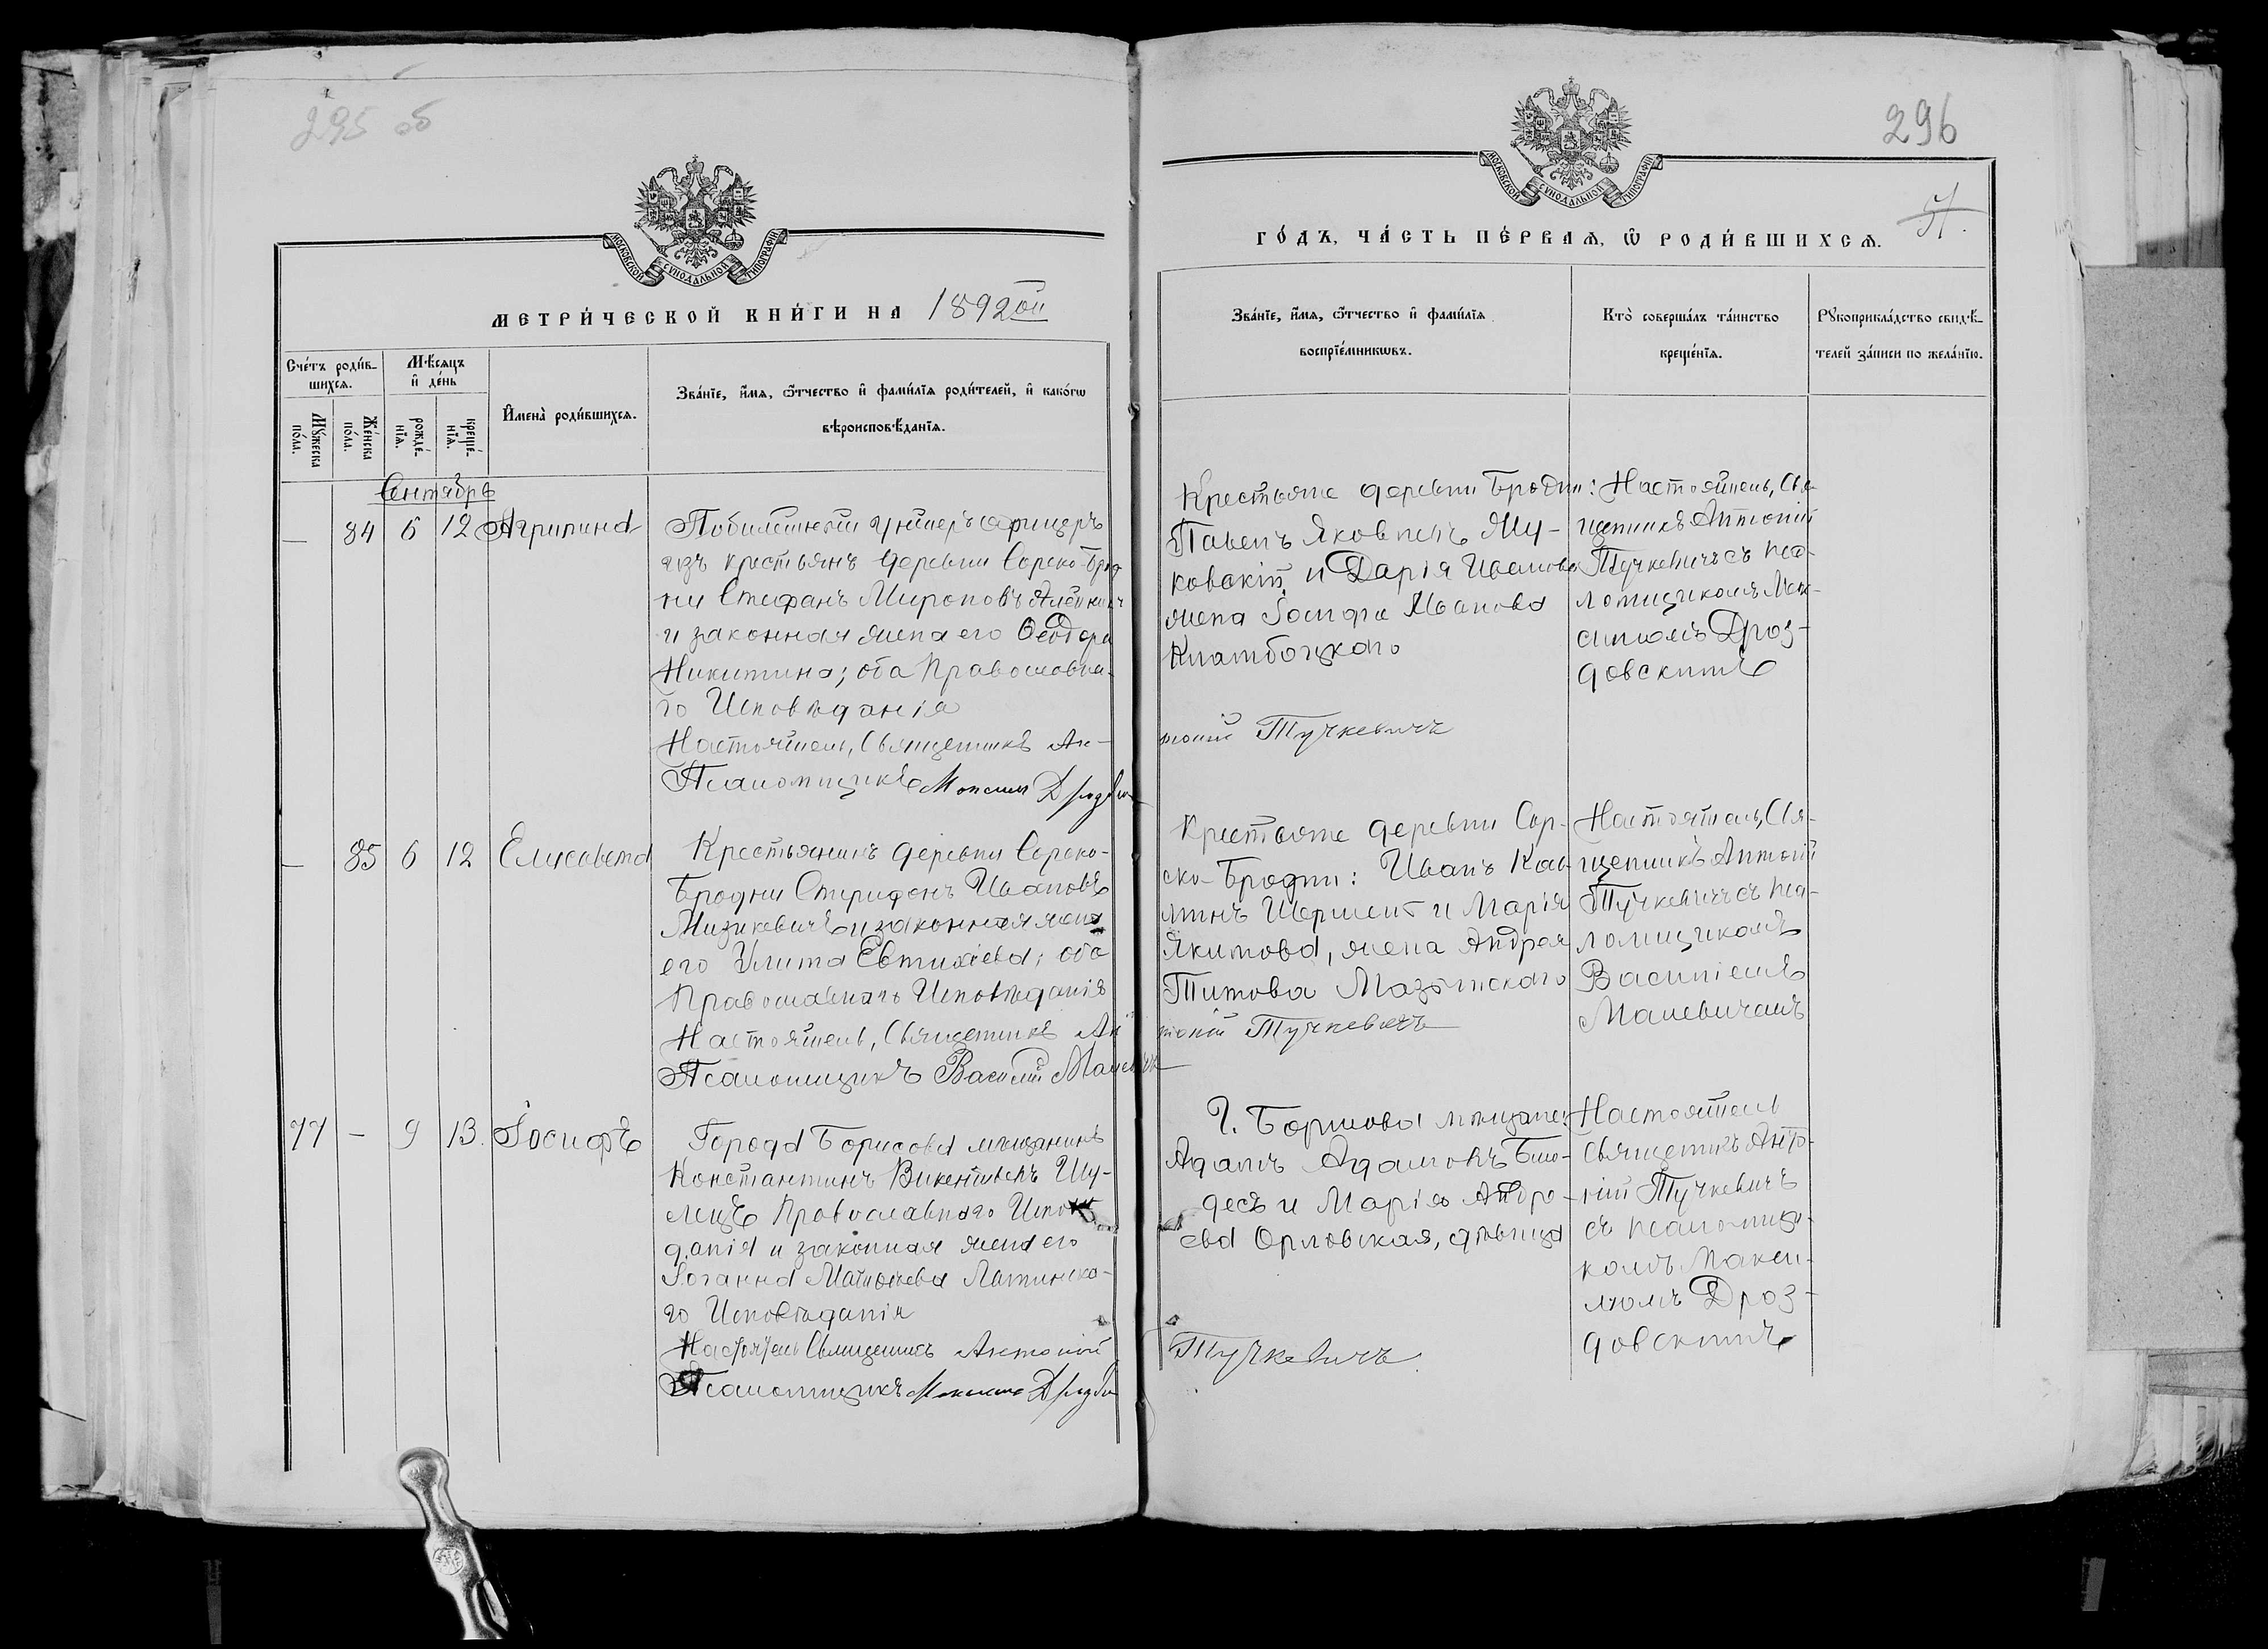 295 об
МОСКОВСКОЙ СѴНОДАЛЬНОЙ ТИПОГРАФІИ
МЕТРИ́ЧЕСКОЙ КНИ́ГИ НА 1892ой
Сче́тъ роди́в-
шихсѧ.
Мѣ́сѧцъ
и҆ де́нь
Мꙋ́жеска
по́ла.
Же́нска
по́ла.
рожде́-
нїѧ.
креще́-
нїѧ.
И҆мена̀ роди́вшихсѧ.
Зва́нїе, и҆́мѧ, ѻ҆́тчество и҆ фами́лїѧ роди́телей, и҆ како́гѡ
вѣроисповѣ́данїѧ.
Сентябрь
— 84 6 12 Агрипина
унтеръ офицеръ
изъ крестьянъ деревни Сорско-Брод
ни Стефанъ Мироновъ
и законная жена его Ѳеодора
Никитина; оба Православна-
го Исповѣданія
Настоятель, Священникъ Ан-
Псаломщикъ Максимъ
— 85 6 12 Елисавета
Крестьянинъ деревни Сорско-
Бродни Спиридонъ Ивановъ
Мизикевичъ и законная жена
его Улита Евтихіева; оба
Православнаго Исповѣданія
Настоятель, Священникъ Ан
Псаломщикъ Василій Малевичъ
77 — 9 13. Іосифъ
Города Борисова мѣщанинъ
Константинъ Викентьевъ Шу-
Православнаго Исповѣ
данія и законная жена его
Іоганна Матѳеева Латинска-
го Исповѣданія
Настоятель Священникъ Антоній
Псаломщикъ Максимъ
296
МОСКОВСКОЙ СѴНОДАЛЬНОЙ ТИПОГРАФІИ
ГО́ДЪ, ЧА́СТЬ ПЕ́РВАѦ, Ѡ҆ РОДИ́ВШИХСѦ.
Зва́нїе, и҆́мѧ, ѻ҆́тчество и҆ фами́лїѧ
воспрїе́мникѡвъ.
Кто̀ соверша́лъ та́инство
креще́нїѧ.
Рꙋкоприкла́дство свидѣ́-
телей за́писи по жела́нїю.
Крестьяне деревни Бродни:
Павелъ Яковлевъ Жу-
ковскій и Дарія Иванова
жена Іосифа Иванова
тоній Тучкевичъ
Настоятель, Свя-
щенникъ Антоній
Тучкевичъ съ пса-
ломщикомъ Мак-
симомъ Дроз-
довскимъ
Крестьяне деревни Сор-
ско-Бродни: Иванъ
и Марія
Якимова, жена Андрея
Титова
тоній Тучкевичъ
Настоятель, Свя-
щенникъ Антоній
Тучкевичъ съ пса-
ломщикомъ
Василіемъ
Малевичемъ
Г. Борисова мѣщане:
Адамъ Адамовъ
и Марія Андре-
ева Орловская, дѣвица
Тучкевичъ
Настоятель
Священникъ Анто-
ній Тучкевичъ
съ псаломщи-
комъ Макси-
момъ Дроз-
довскимъ